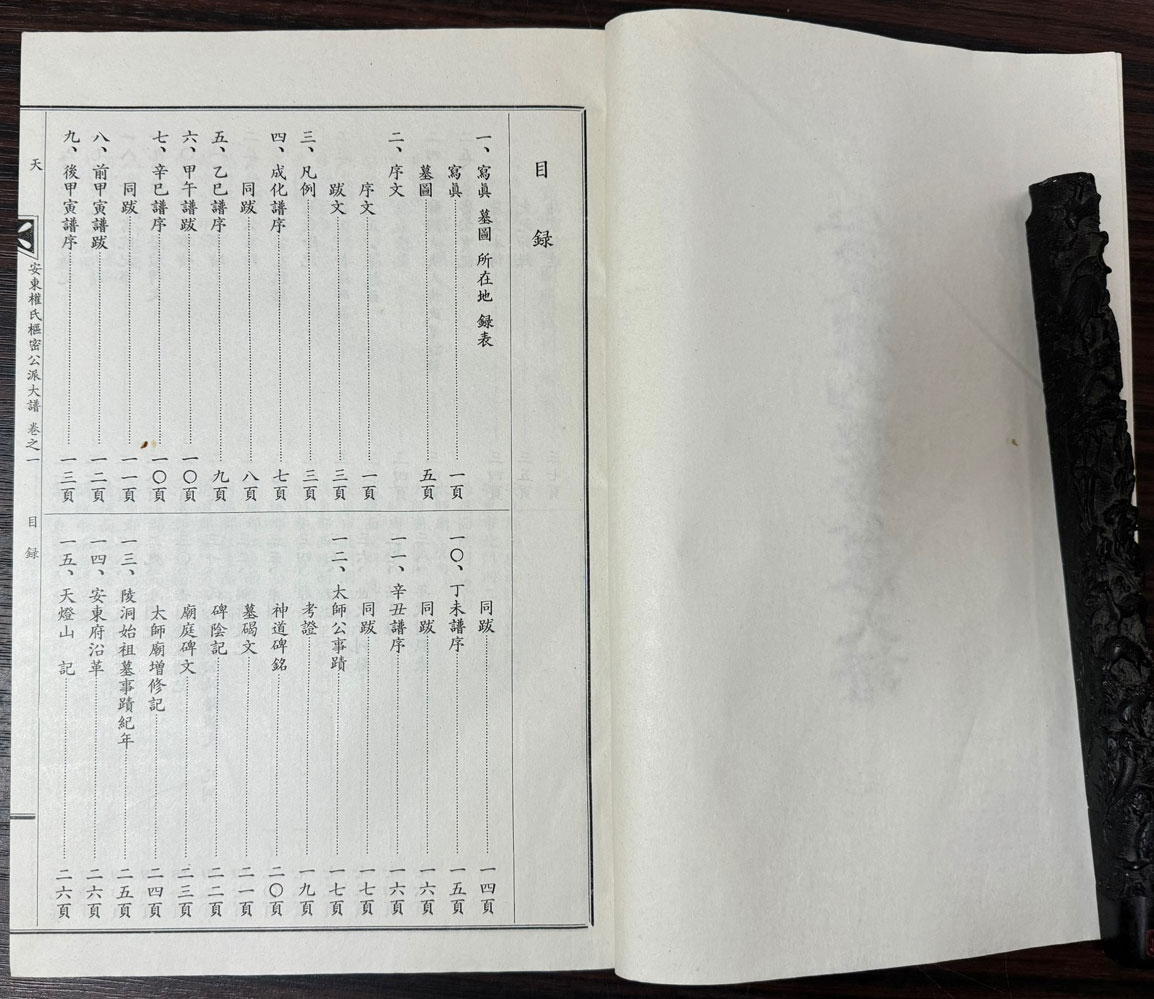 目録
一、寫眞 墓圖 所在地 録表
寫眞……一頁
墓圖……五頁
二、序文
序文……一頁
跋文……三頁
三、凡例……三頁
四、成化譜序……七頁
同跋……八頁
五、乙巳譜序……九頁
六、甲午譜跋……一〇頁
七、辛巳譜序……一〇頁
同跋……一一頁
八、前甲寅譜跋……一二頁
九、後甲寅譜序……一三頁
同跋……一四頁
一〇、丁未譜序……一五頁
同跋……一六頁
一一、辛丑譜序……一六頁
同跋……一七頁
一二、太師公事蹟……一七頁
考證……一九頁
神道碑銘……二〇頁
墓碣文……二一頁
碑陰記……二二頁
廟庭碑文……二三頁
太師廟增修記……二四頁
一三、陵洞始祖墓事蹟紀年……二五頁
一四、安東府沿革……二六頁
一五、天燈山 記……二六頁
天 安東權氏樞密公派大譜 卷之一 目録